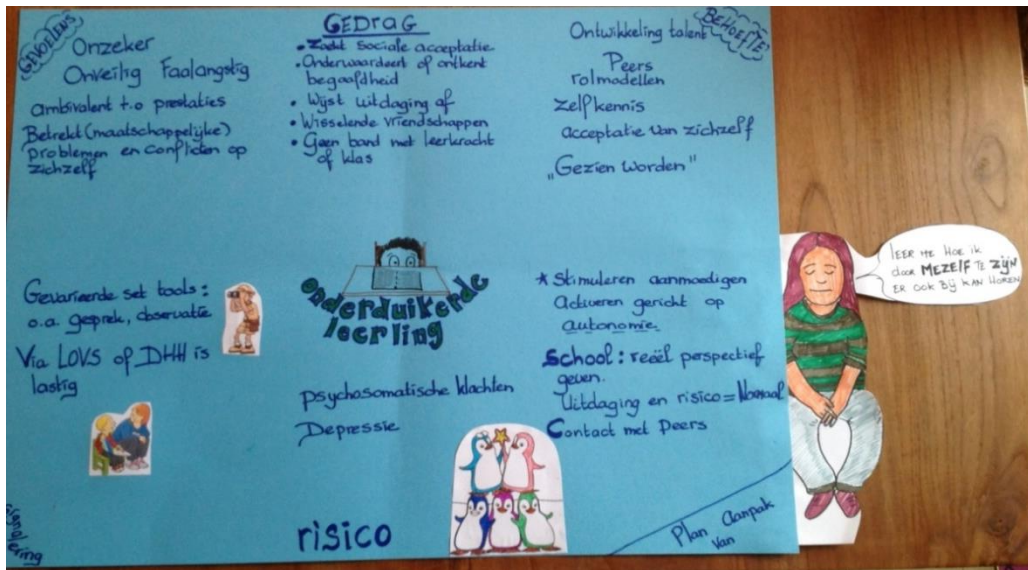 GEVOELENS
Onzeker
Onveilig Faalangstig
ambivalent t.o prestaties
Betrekt (maatschappelijke)
problemen en conflicten op
zichzelf
GEDRAG
• Zoekt sociale acceptatie
• Onderwaardeert of ontkent
begaafdheid
• Wijst uitdaging af
• Wisselende vriendschappen
• Geen band met leerkracht
of klas
BEHOEFTE
Ontwikkeling talent
Peers
rolmodellen
Zelfkennis
acceptatie van zichzelf
„Gezien worden"
Gevarieerde set tools:
o.a. gesprek, observatie
Via LOVS of DHH is
lastig
signalering
onderduikerde
leerling
psychosomatische klachten
Depressie
risico
* Stimuleren aanmoedigen
Activeren gericht op
autonomie.
School: reëel perspectief
geven.
Uitdaging en risico = Normaal
Contact met Peers
Plan van Aanpak
LEER ME HOE IK
door MEZELF TE ZIJN
ER OOK BIJ KAN HOREN